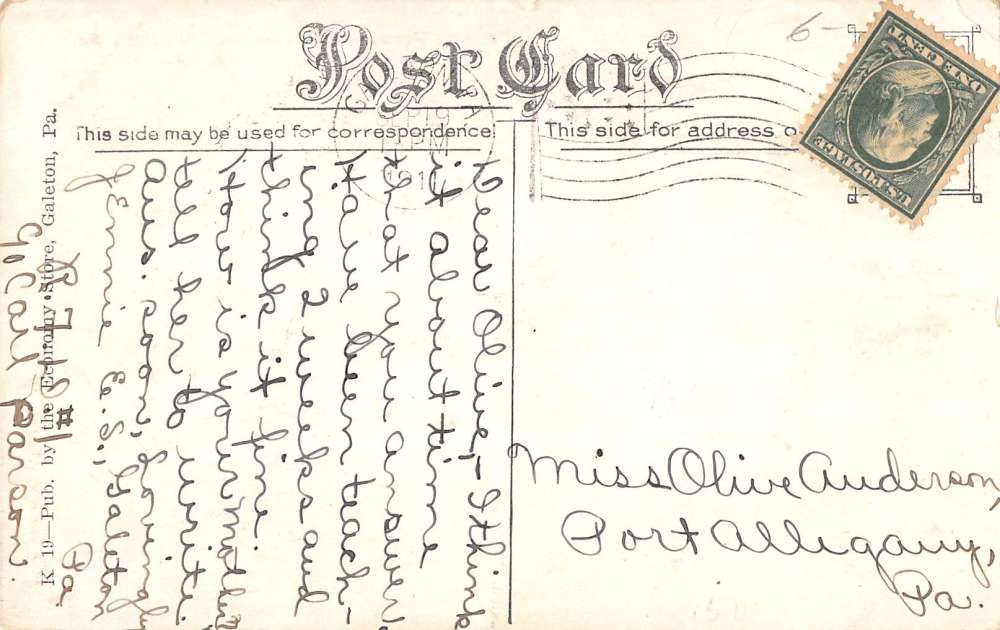 Post Card
This side may be used for correspondence
This side for address o
6-
U.S. POSTAGE
ONE CENT
P 19
PM
191
K 19—Pub. by the Economy Store, Galeton, Pa.
Dear Olive,- I think
it about time
that you answer.
Have been teach-
ing 2 weeks and
think it fine.
How is your mother?
tell her to write.
Ans. soon, Lovingly
Jennie E. S., Galeton
Pa.
R.F.D. #1
℅ Carl Parson.
Miss Olive Anderson,
Port Allegany,
Pa.